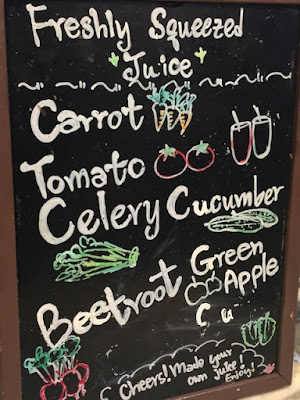 Freshly Squeezed
Juice
Carrot
Tomato
Celery Cucumber
Beetroot Green Apple
C u
Cheers! Made your
own juice! Enjoy!